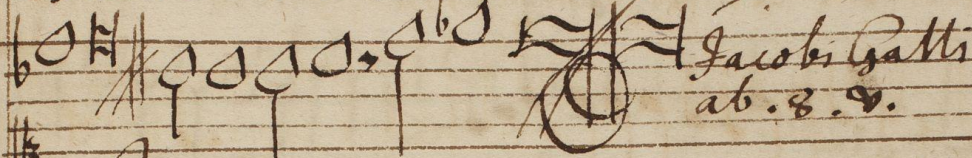 Jacobi Galli
ab . 8 . v.